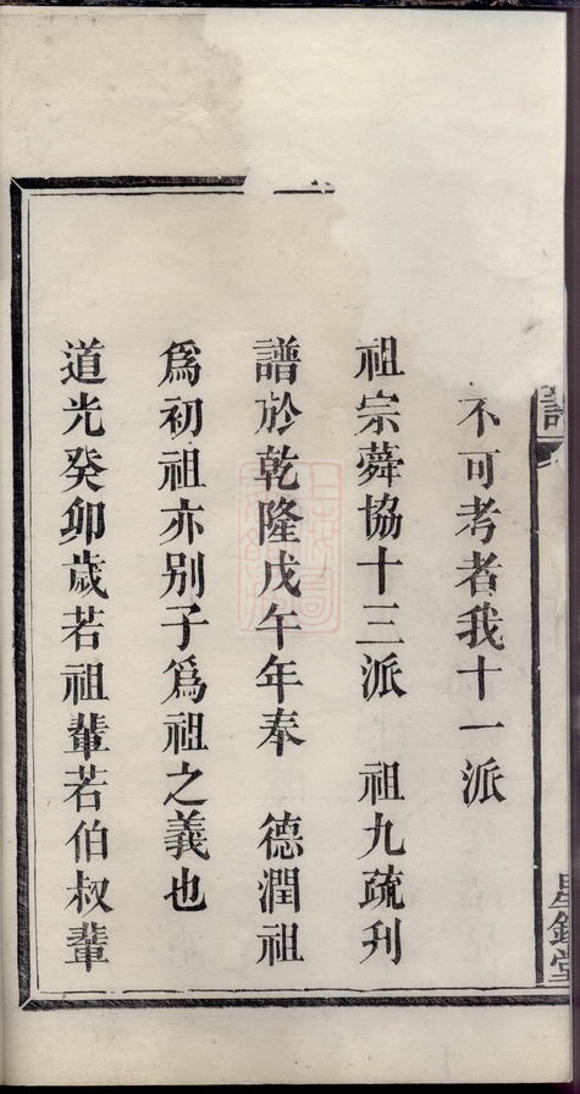 不可考者我十一派
祖宗蕣協十三派　祖九疏刋
譜於乾隆戊午年奉　德潤祖
爲初祖亦别子爲祖之義也
道光癸卯歲若祖輩若伯叔輩